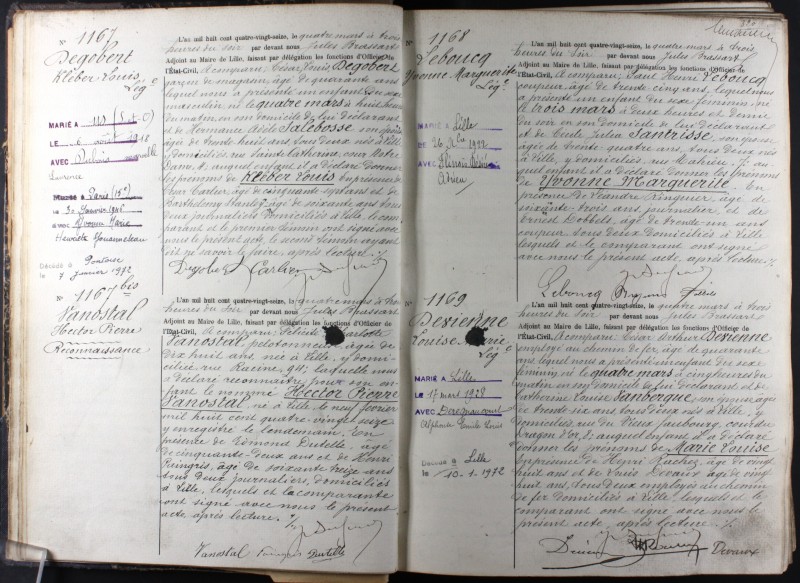 N° 1167
Degobert
Kléber Louis,
Lég e
MARIÉ A
LE 6 1918
AVEC Dubois
Laurence
MARIÉ A Paris (15e)
le 30 Janvier 1946
avec Marie
Henriette
Décédé à Pontoise
le 7 janvier 1972
L'an mil huit cent quatre-vingt-seize, le quatre mars à trois
heures du soir par devant nous Jules Brassart
Adjoint au Maire de Lille, faisant par délégation les fonctions d'Officier de
l'État-Civil, a comparu César Louis Degobert
garçon de magasin, âgé de quarante ans,
lequel nous a présenté un enfant du sexe
masculin, né le quatre mars à huit heures
du matin, en son domicile de lui déclarant
et de Hermance Adèle Salebosse son épouse
âgée de trente huit ans, tous deux nés à Lille
y domiciliés, rue Sainte Catherine, cour Notre
Dame, auquel enfant il a déclaré donner
les prénoms de Kléber Louis En présence de
Carlier, âgé de cinquante sept ans et de
Barthélemy âgé de soixante ans, tous
deux journaliers, domiciliés à Lille, le com-
parant et le premier témoin ont signé avec
nous le présent acte, le second témoin ayant
dit ne savoir le faire, après lecture.
Degobert Carlier
N° 1167 bis
Vanostal
Hector Pierre
Reconnaissance
L'an mil huit cent quatre-vingt-seize, le quatre mars à trois
heures du soir par devant nous Jules Brassart
Adjoint au Maire de Lille, faisant par délégation les fonctions d'Officier de
l'État-Civil, a comparu Félicité
Vanostal, pelotonneuse, âgée de
dix huit ans, née à Lille, y domi-
ciliée, rue Racine, 94, laquelle nous
a déclaré reconnaître pour son en-
fant le nommé Hector Pierre
Vanostal né à Lille, le neuf février
mil huit cent quatre-vingt seize
y enregistré le lendemain. En
présence de Edmond Dutille, âgé
de cinquante-deux ans et de Henri
âgé de soixante treize ans
tous deux journaliers, domiciliés
à Lille, lesquels et la comparante
ont signé avec nous le présent
acte, après lecture.
Vanostal Dutille
N° 1168
Leboucq
Yvonne Marguerite
Lég e
MARIÉ A Lille
LE 26 1922
AVEC
L'an mil huit cent quatre-vingt-seize, le quatre mars à trois
heures du soir par devant nous Jules Brassart
Adjoint au Maire de Lille, faisant par délégation les fonctions d'Officier de
l'État-Civil, a comparu Paul Henri Leboucq
coupeur, âgé de trente cinq ans, lequel nous
a présenté un enfant du sexe féminin, né
le trois mars à deux heures et demie
du soir en son domicile de lui déclarant
et de Cécile Julia Santrisse, son épouse
âgée de trente-quatre ans, tous deux nés
à Lille, y domiciliés, rue Mahieu, 7 au-
quel enfant il a déclaré donner les prénoms
de Yvonne Marguerite. En
présence de Léandre âgé de
soixante trois ans, journalier, et de
Ernest Dobbels, âgé de trente un ans
coupeur, tous deux domiciliés à Lille,
lesquels et le comparant ont signé
avec nous le présent acte, après lecture.
Leboucq
N° 1169
Devienne
Louise Marie
Lég e
MARIÉ A Lille
LE 17 mars 1928
AVEC
Alphonse Emile Louis
Décédé à Lille
le 10.1.1972
L'an mil huit cent quatre-vingt-seize, le quatre mars à trois
heures du soir par devant nous Jules Brassart
Adjoint au Maire de Lille, faisant par délégation les fonctions d'Officier de
l'État-Civil, a comparu César Arthur Devienne
employé au chemin de fer, âgé de quarante
ans, lequel nous a présenté un enfant du sexe
féminin, né le quatre mars à cinq heures du
matin en son domicile de lui déclarant et de
Catherine Louise Vanbergue, son épouse, âgée
de trente-six ans, tous deux nés à Lille, y
domiciliés, rue du Vieux faubourg, cour du
Dragon d'or, 8, auquel enfant il a déclaré
donner les prénoms de Marie Louise
En présence de Henri Rachez, âgé de vingt
huit ans et de Louis Devaux, âgé de vingt
huit ans, tous deux employés au chemin
de fer, domiciliés à Lille, lesquels et le
comparant ont signé avec nous le
présent acte, après lecture.
Devaux